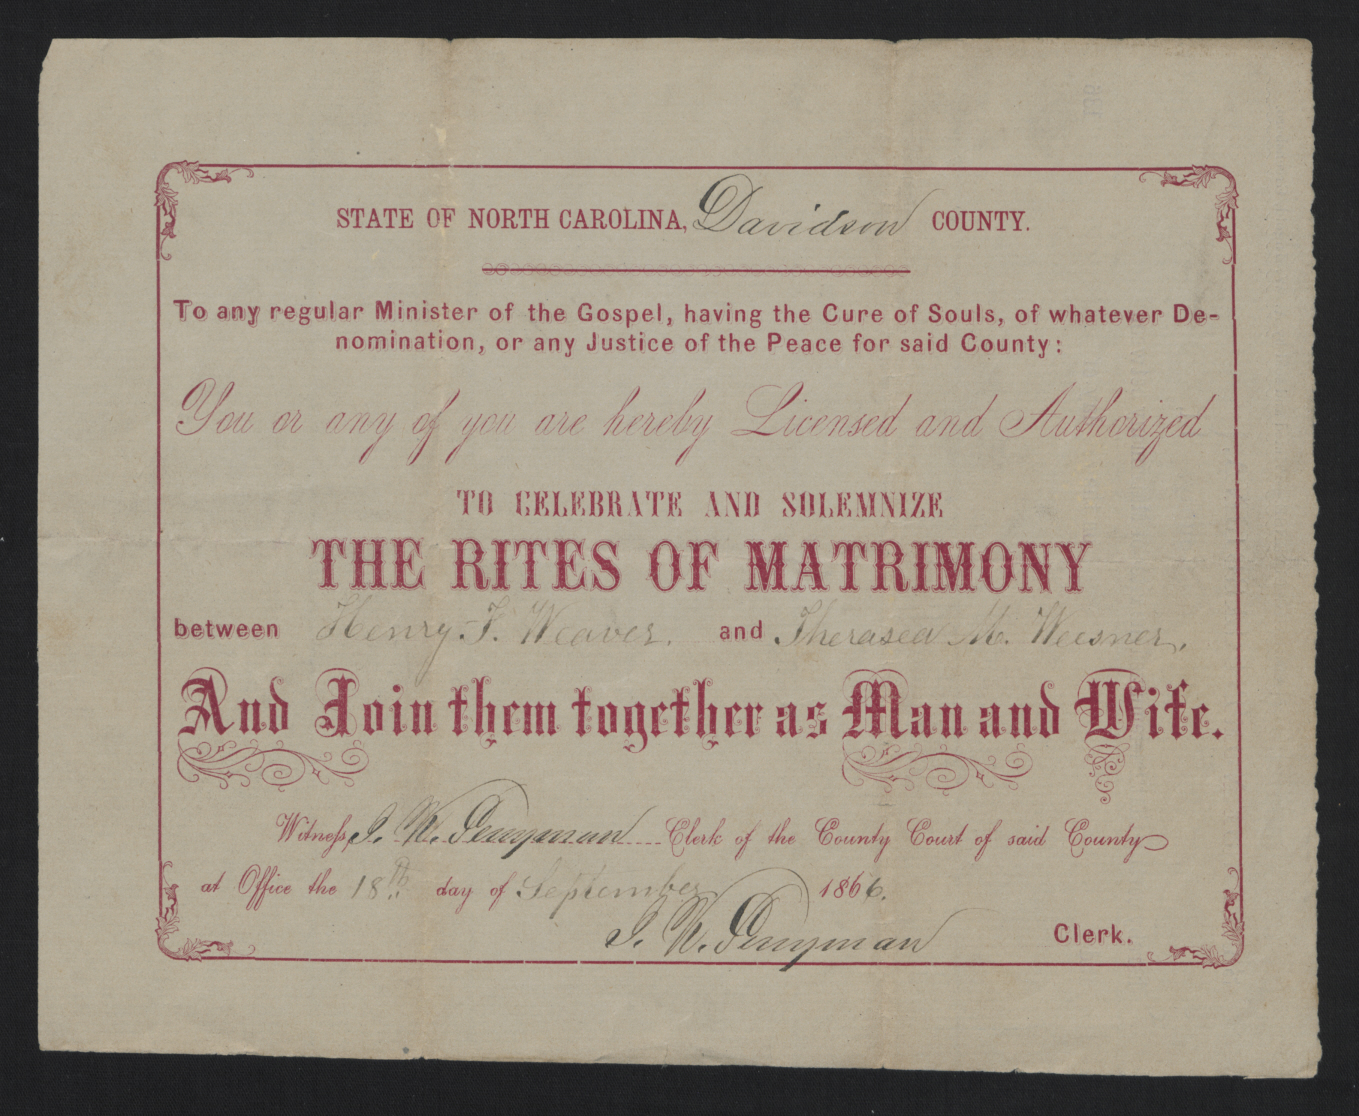 STATE OF NORTH CAROLINA, Davidson COUNTY.
To any regular Minister of the Gospel, having the Cure of Souls, of whatever De-
nomination, or any Justice of the Peace for said County:
You or any of you are hereby Licensed and Authorized
TO CELEBRATE AND SOLEMNIZE
THE RITES OF MATRIMONY
between Henry F. Weaver. and Therasea M. Weesner,
And Join them together as Man and Wife.
Witness, I. K. Perryman Clerk of the County Court of said County
at Office the 18th day of September 1866.
I. K. Perryman Clerk.